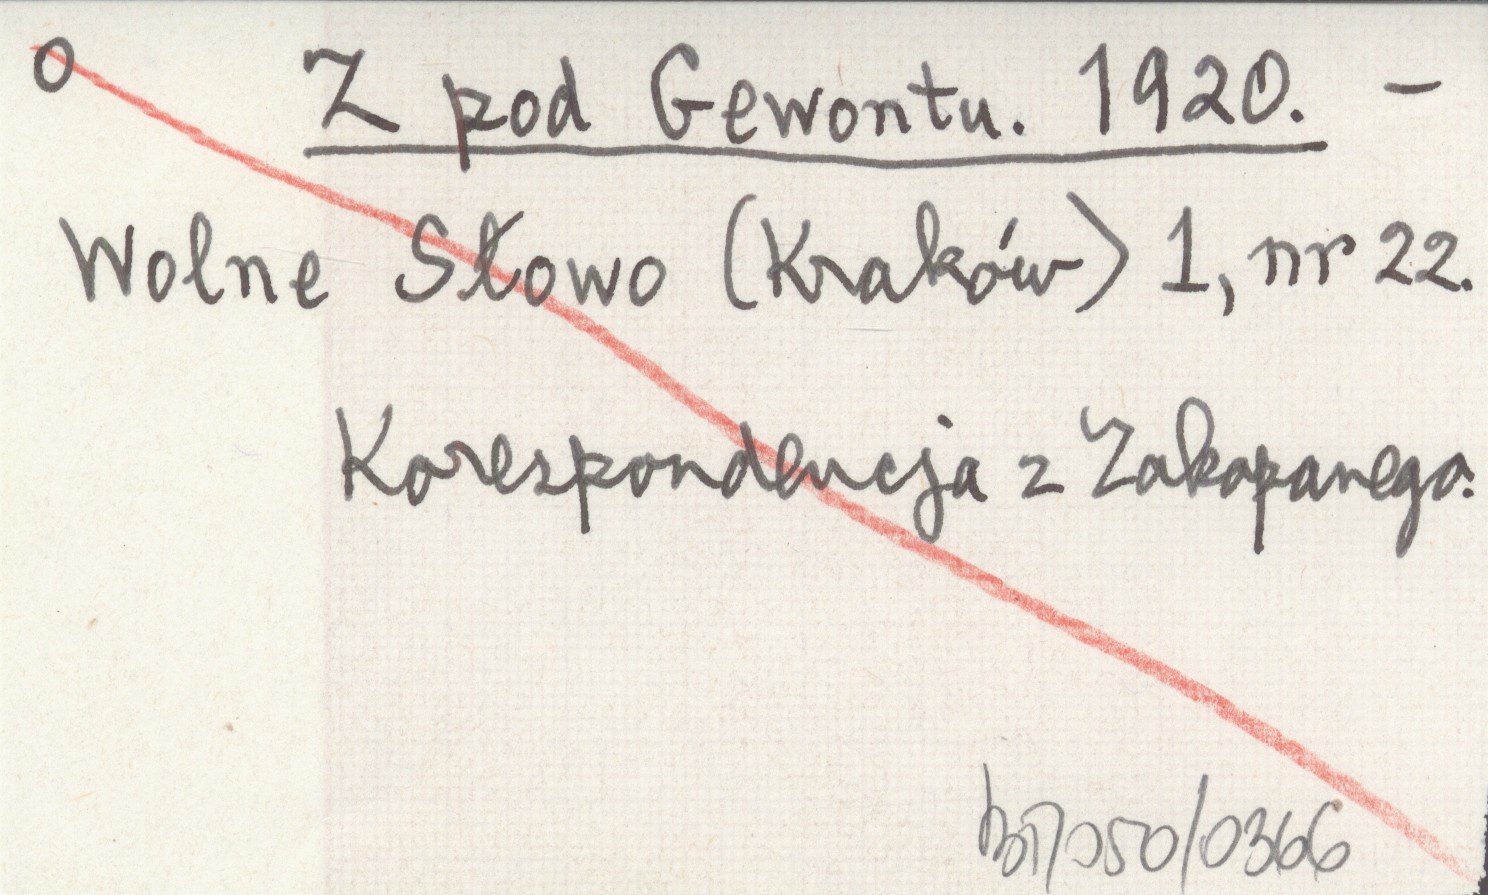 o Z pod Gewontu. 1920. –
Wolne Słowo (Kraków) 1, nr 22.
Korespondencja z Zakopanego.
/050/0366